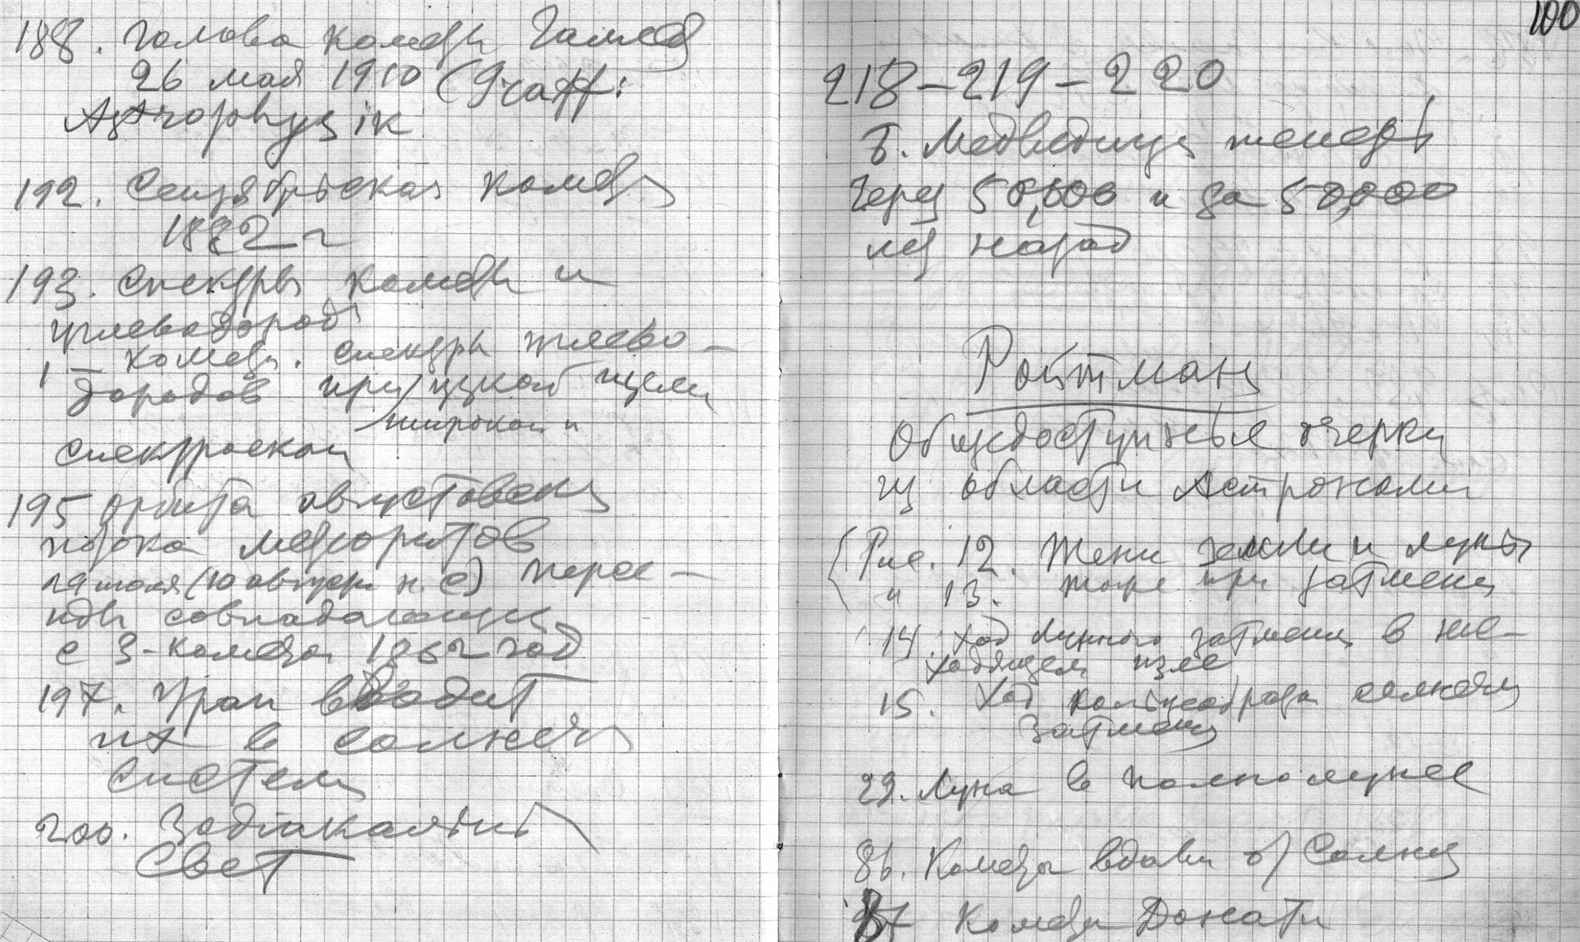 188. Голова кометы Галлея
26 мая 1910 (Graff:
Astrophysik
192. Сентябрьская комета
1882 г
193. Спектры кометы и
углеводород
кометы. Спектры углево-
дородов при узкой щели
широкой и
спектроскоп
195 Орбита августовского
потока метеоритов
29 июля (10 август н. с) персе-
иды совпадающ
с 3-кометы 1862 год
197. Уран вводит
их в солнечн
систем
200. Зодіакальный
Свет
100
218-219-220
Б. Медведица теперь
через 50,000 и за 50,000
лет назад
Ройтман
Общедоступные очерки
из области Астрономии
Рис. 12. Тени земли и луны
и 13. тоже при затмени
14. Ход Лунного затмения в
15. Ход кольцеобразн солнечн
затмен
23. Луна в полнолуние
86. Кометы вдали от Солнца
87 Комета Донати